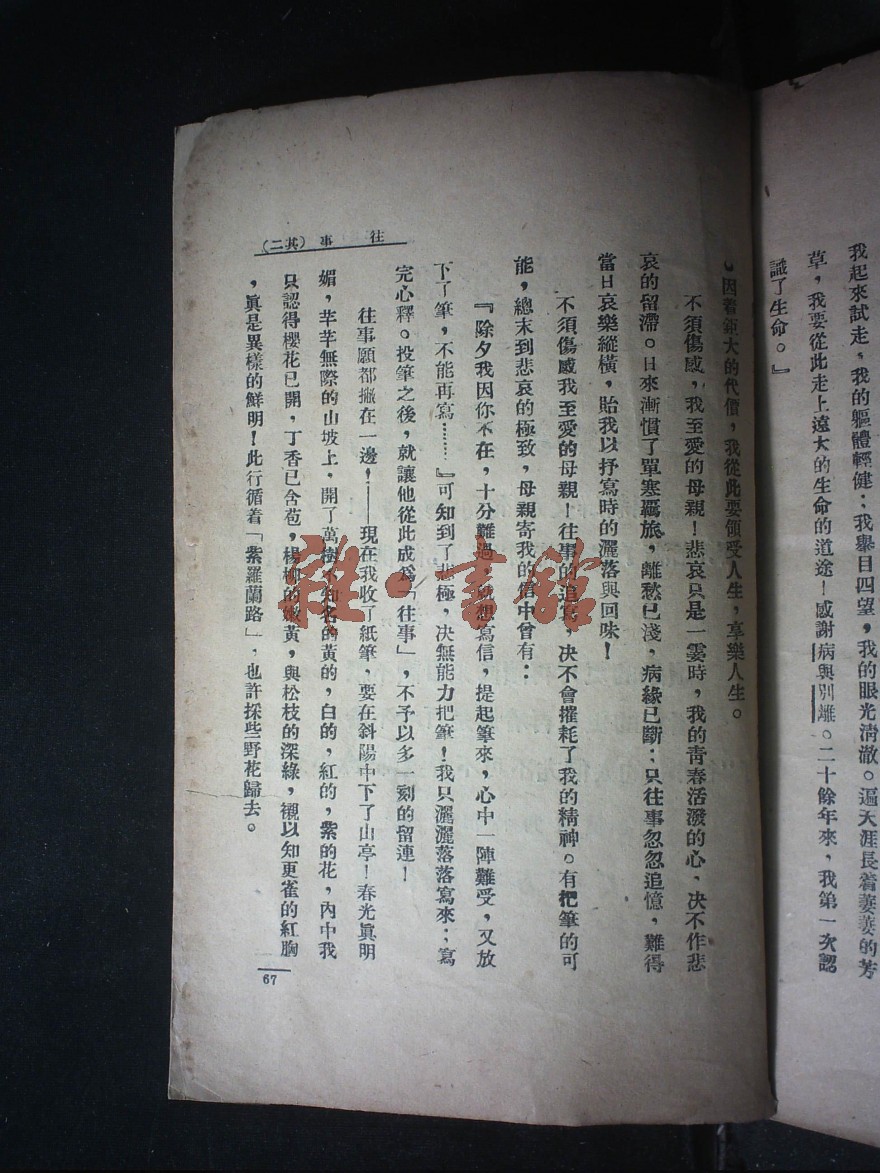 我起來試走，我的軀體輕健；我舉目四望，我的眼光清澈。遍天涯長着萋萋的芳
草，我要從此走上遠大的生命的道途！感謝病與別離。二十餘年來，我第一次認
識了生命。』
因着範大的代價，我從此要領受人生，享樂人生。
不須傷感，我至愛的母親！悲哀只是一霎時，我的青春活潑的心，決不作悲
哀的留滯。日來漸慣了單寒羈旅，離愁已淺，病緣已斷；只往事忽忽追憶，難得
當日哀樂縱橫，貽我以抒寫時的灑落與回味！
不須傷感我至愛的母親！往事的追寫，決不會摧耗了我的精神。有把筆的可
能，總未到悲哀的極致，母親寄我的信中曾有：
『除夕我因你不在，十分難過，就想寫信，提起筆來，心中一陣難受，又放
下了筆，不能再寫………』可知到了悲極，決無能力把筆！我只灑灑落落寫來；寫
完心釋。投筆之後，就讓他從此成爲「往事」，不予以多一刻的留連！
往事願都撇在一邊！——現在我收了紙筆，要在斜陽中下了山亭！春光眞明
媚，芊芊無際的山坡上，開了萬樹不知名的黃的，白的，紅的，紫的花，內中我
只認得櫻花已開，丁香已含苞，楊柳的嫩黃，與松枝的深綠，襯以知更雀的紅胸
，眞是異樣的鮮明！此行循着「紫羅蘭路」，也許採些野花歸去。
往事（其二）
67
雜·書館